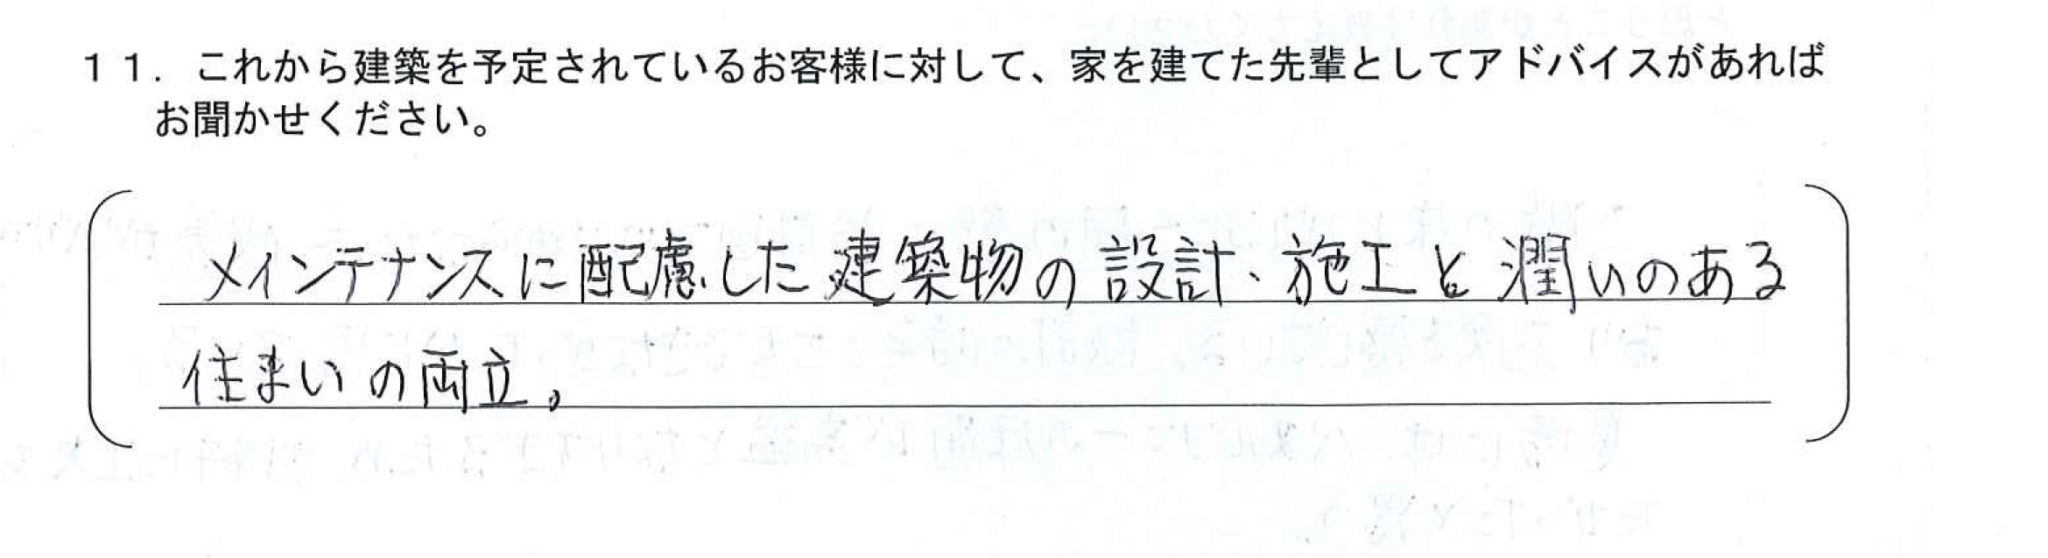 11．これから建築を予定されているお客様に対して、家を建てた先輩としてアドバイスがあれば
お聞かせください。
メインテナンスに配慮した建築物の設計、施工と潤いのある
住まいの両立。